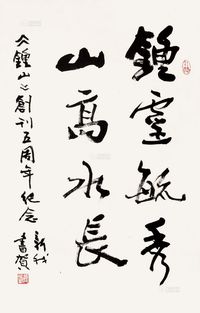 鍾靈毓秀
山高水長
《鍾山》創刊五周年纪念
新我
書賀